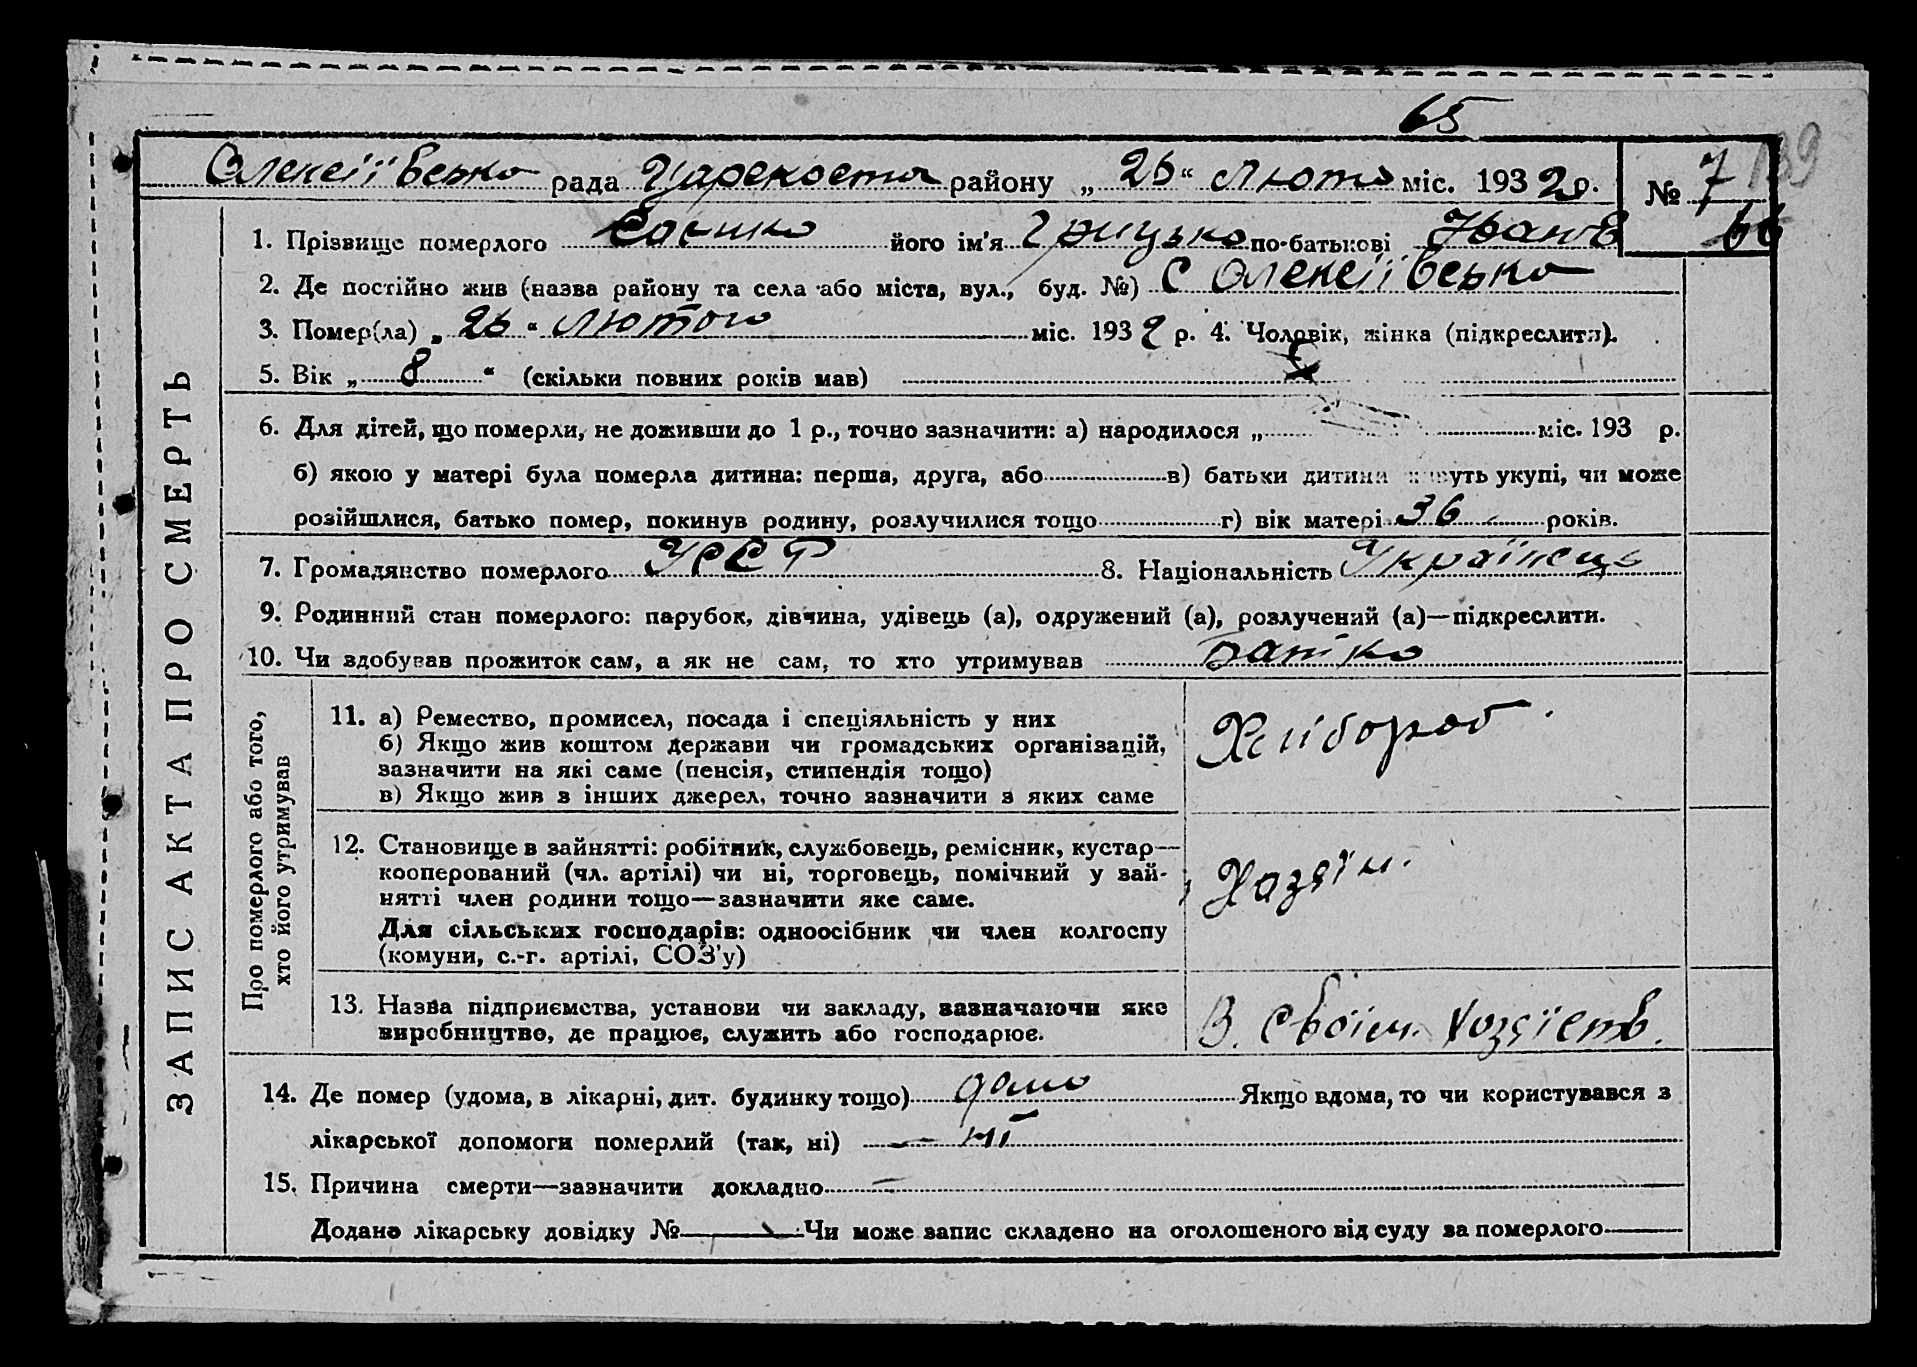 65
Олексіївсько рада району „ 26 “ Люто міс. 1932 р. № 7 139
66
1. Прізвище померлого його ім'я Грицько по-батькові Іван
2. Де постійно жив (назва району та села або міста, вул., буд. №) с Олексіївсько
3. Помер(ла) „ 26 “ Лютого міс. 1932 р. 4. Чоловік, жінка (підкреслити).
5. Вік „ 8 “ (скільки повних років мав)
6. Для дітей, що померли, не доживши до 1 р., точно зазначити: а) народилося „ міс. 193 р.
б) якою у матері була померла дитина: перша, друга, або в) батьки дитини живуть укупі, чи може
розійшлися, батько помер, покинув родину, розлучилися тощо г) вік матері 36 років.
7. Громадянство померлого УССР 8. Національність Українець
9. Родинний стан померлого: парубок, дівчина, удівець (а), одружений (а), розлучений (а)—підкреслити.
10. Чи здобував прожиток сам, а як не сам, то хто утримував Батко
ЗАПИС АКТА ПРО СМЕРТЬ
Про померлого або того,
хто його утримував
11. а) Ремество, промисел, посада і спеціяльність у них
б) Якщо жив коштом держави чи громадських організацій,
зазначити на які саме (пенсія, стипендія тощо)
в) Якщо жив з інших джерел, точно зазначити з яких саме
Хлібороб.
12. Становище в зайнятті: робітник, службовець, ремісник, кустар—
кооперований (чл. артілі) чи ні, торговець, помічний у зай-
нятті член родини тощо—зазначити яке саме.
Для сільських господарів: одноосібник чи член колгоспу
(комуни, с.-г. артілі, СОЗ'у)
Хазяїн.
13. Назва підприємства, установи чи закладу, зазначаючи яке
виробництво, де працює, служить або господарює.
В. своїм. хозяїств.
14. Де помер (удома, в лікарні, дит. будинку тощо) дома Якщо вдома, то чи користувався з
лікарської допомоги померлий (так, ні) — ні
15. Причина смерти—зазначити докладно —
Додано лікарську довідку № Чи може запис складено на оголошеного від суду за померлого